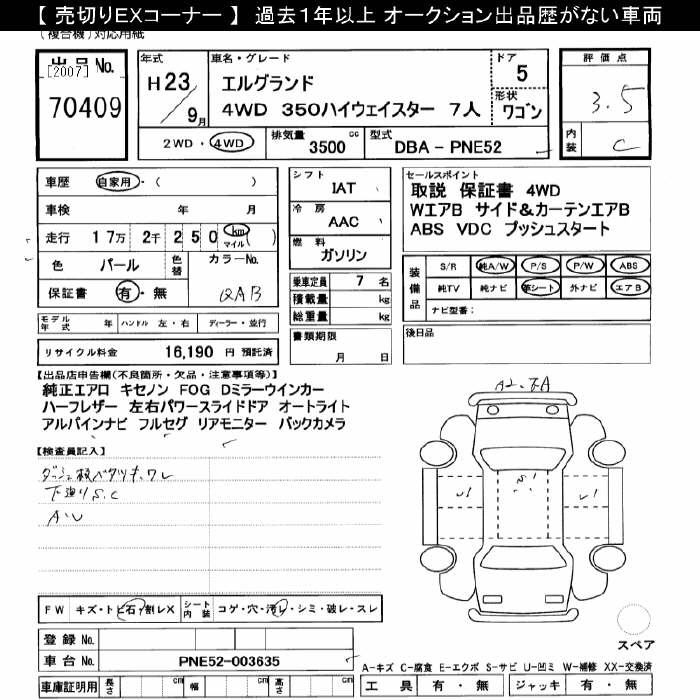 【 売切りEXコーナー 】 過去1年以上 オークション出品歴がない車両
(複合機)対応用紙
出品 No.
[2007]
70409
年式
H 23 / 9月
車名・グレード
エルグランド
4WD 350ハイウェイスター 7人
ドア
5
形状
ワゴン
評価点
3.5
内装
C
2WD・4WD
排気量 3500 cc
型式 DBA - PNE52
車歴 自家用・( )
車検 年 月
走行 17万 2千 250 km マイル ( )
色 パール
色替
カラーNo.
QAB
保証書 有・無
シフト
IAT
冷房
AAC
燃料
ガソリン
乗車定員 7 名
積載量 kg
総重量 kg
書類期限
月 日
セールスポイント
取説 保証書 4WD
WエアB サイド&カーテンエアB
ABS VDC プッシュスタート
装備品
S/R 純A/W P/S P/W ABS
純TV 純ナビ 革シート 外ナビ エアB
ナビ型番:
後日品
モデル年式 年 ハンドル 左・右 ディーラー・並行
リサイクル料金 16,190 円 預託済
【出品店申告欄(不良箇所・欠品・注意事項等)】
純正エアロ キセノン FOG Dミラーウインカー
ハーフレザー 左右パワースライドドア オートライト
アルパインナビ フルセグ リアモニター バックカメラ
【検査員記入】
下廻りS.C
A.U
FW キズ・トビ石・割レX
シート内装 コゲ・穴・汚レ・シミ・破レ・スレ
登録 No.
車台 No. PNE52-003635
車庫証明用 長さ cm 幅 cm 高さ cm
スペア
A-キズ C-腐食 E-エクボ S-サビ U-凹ミ W-補修 XX-交換済
工具 有・無 ジャッキ 有・無